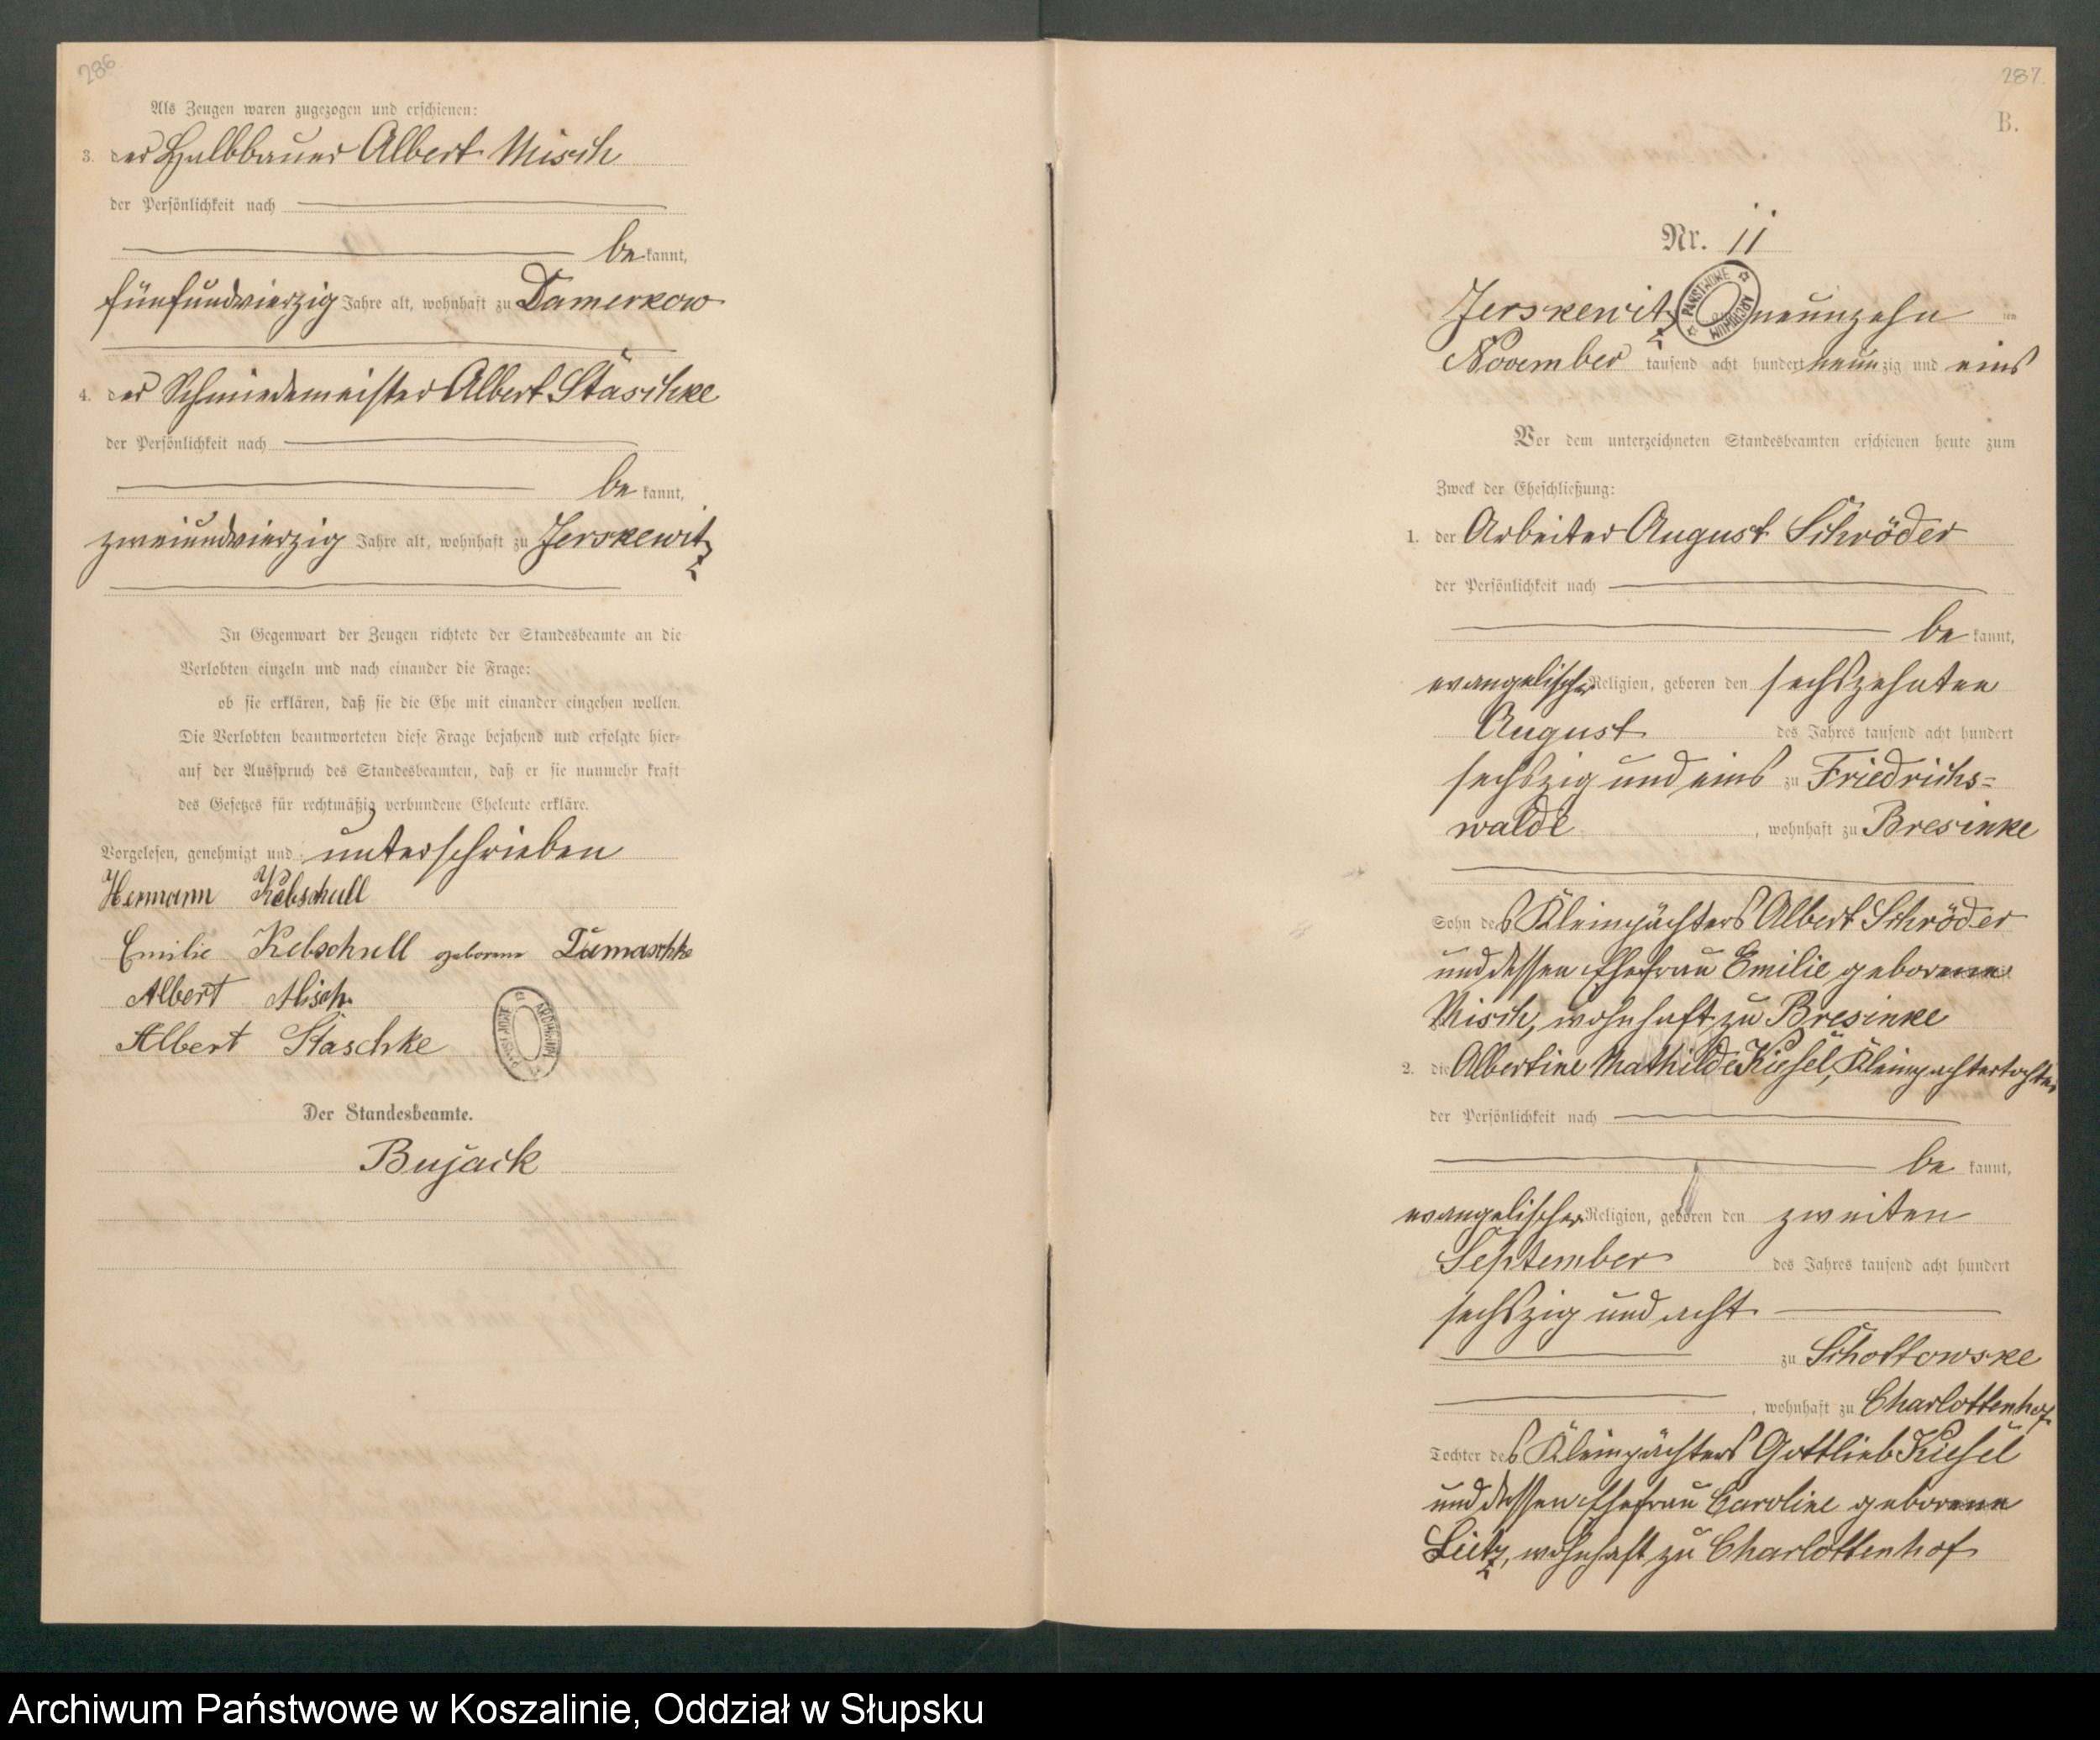 286.
Als Zeugen waren zugezogen und erschienen:
3. der Halbbauer Albert Misch
der Persönlichkeit nach
bekannt,
fünfundvierzig Jahre alt, wohnhaft zu Damerkow
4. der Schmiedemeister Albert Staschke
der Persönlichkeit nach
bekannt,
zweiundvierzig Jahre alt, wohnhaft zu Jerskewitz
In Gegenwart der Zeugen richtete der Standesbeamte an die
Verlobten einzeln und nach einander die Frage:
ob sie erklären, daß sie die Ehe mit einander eingehen wollen.
Die Verlobten beantworteten diese Frage bejahend und erfolgte hier-
auf der Ausspruch des Standesbeamten, daß er sie nunmehr kraft
des Gesetzes für rechtmäßig verbundene Eheleute erkläre.
Vorgelesen, genehmigt und unterschrieben
Hermann Kebschull
Emilie Kebschull geborene Dumaschke
Albert Misch
Albert Staschke
ARCHIWUM PAŃSTWOWE
Der Standesbeamte.
Bujack
287.
B.
Nr. 11
Jerskewitz neunzehn ten
ARCHIWUM PAŃSTWOWE
November tausend acht hundert neunzig und eins
Vor dem unterzeichneten Standesbeamten erschienen heute zum
Zweck der Eheschließung:
1. der Arbeiter August Schröder
der Persönlichkeit nach
bekannt,
evangelischer Religion, geboren den sechszehnten
August des Jahres tausend acht hundert
sechszig und eins zu Friedrichs=
walde, wohnhaft zu Bresinke
Sohn des Kleinpächters Albert Schröder
und dessen Ehefrau Emilie geborene
Misch, wohnhaft zu Bresinke
2. die Albertine Mathilde Kiesel, Kleinpachtertochter
der Persönlichkeit nach
bekannt,
evangelischer Religion, geboren den zweiten
September des Jahres tausend acht hundert
sechszig und acht
zu Schottowske
, wohnhaft zu Charlottenhof
Tochter des Kleinpächters Gottlieb Kiesel
und dessen Ehefrau Caroline geborene
Lietz, wohnhaft zu Charlottenhof
Archiwum Państwowe w Koszalinie, Oddział w Słupsku